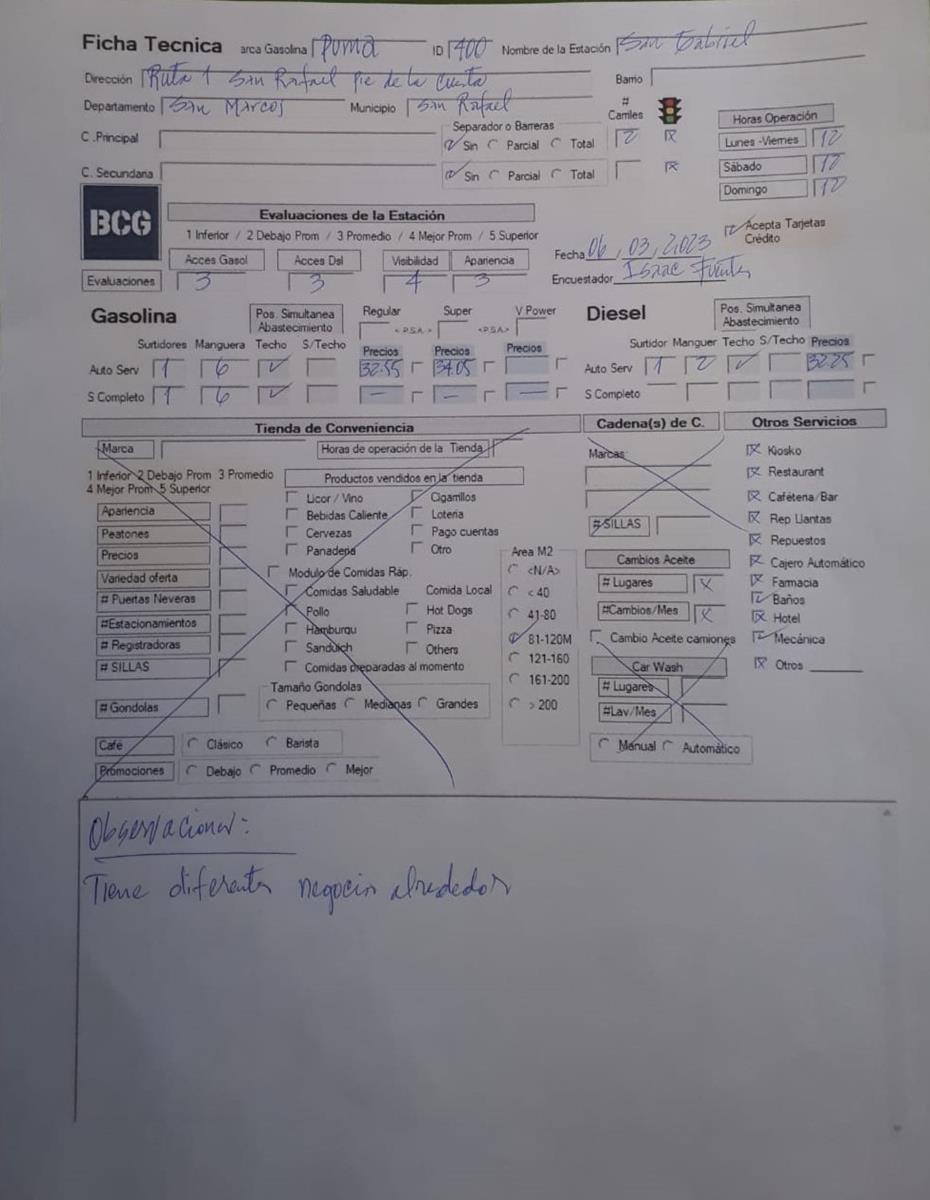 Ficha Tecnica arca Gasolina Puma ID 400 Nombre de la Estación San Gabriel
Dirección Ruta 1 San Rafael Pie de la Cuesta Barrio
Departamento San Marcos Municipio San Rafael # Carriles
Horas Operación
C .Principal Separador o Barreras Sin Parcial Total 2 Lunes -Viernes 12
C. Secundaria Sin Parcial Total Sábado 12
Domingo 12
BCG
Evaluaciones de la Estación
1 Inferior / 2 Debajo Prom / 3 Promedio / 4 Mejor Prom / 5 Superior
Acepta Tarjetas Crédito
Fecha 06, 03, 2023
Acces Gasol Acces Dsl Visibilidad Apariencia
Encuestador Isaac Fuentes
Evaluaciones 3 3 4 3
Gasolina Pos. Simultanea Abastecimiento Regular < P.S.A. > Super <P.S.A.> V Power Diesel Pos. Simultanea Abastecimiento
Surtidores Manguera Techo S/Techo Precios Precios Precios Surtidor Manguer Techo S/Techo Precios
Auto Serv 1 6 32.55 34.05 Auto Serv 1 2 32.25
S Completo 1 6 — — — S Completo
Tienda de Conveniencia Cadena(s) de C. Otros Servicios
Marca Horas de operación de la Tienda Marcas: Kiosko
1 Inferior 2 Debajo Prom 3 Promedio Productos vendidos en la tienda Restaurant
4 Mejor Prom 5 Superior
Licor / Vino Cigarrillos Cafétena/Bar
Apariencia Bebidas Caliente Loteria # SILLAS Rep Llantas
Peatones Cervezas Pago cuentas Repuestos
Precios Panaderia Otro Area M2 Cambios Aceite Cajero Automático
Variedad oferta Modulo de Comidas Ráp. <N/A> # Lugares X Farmacia
# Puertas Neveras Comidas Saludable Comida Local < 40 Baños
#Estacionamientos Pollo Hot Dogs 41-80 #Cambios/Mes X Hotel
# Registradoras Hamburqu Pizza 81-120M Cambio Aceite camiones Mecánica
# SILLAS Sanduich Others 121-160 Car Wash Otros
Comidas preparadas al momento 161-200 # Lugares
# Gondolas Tamaño Gondolas Pequeñas Medianas Grandes > 200 #Lav/Mes
Café Clásico Barista Manual Automático
Promociones Debajo Promedio Mejor
Observaciones:
Tiene diferentes negocios alrededor